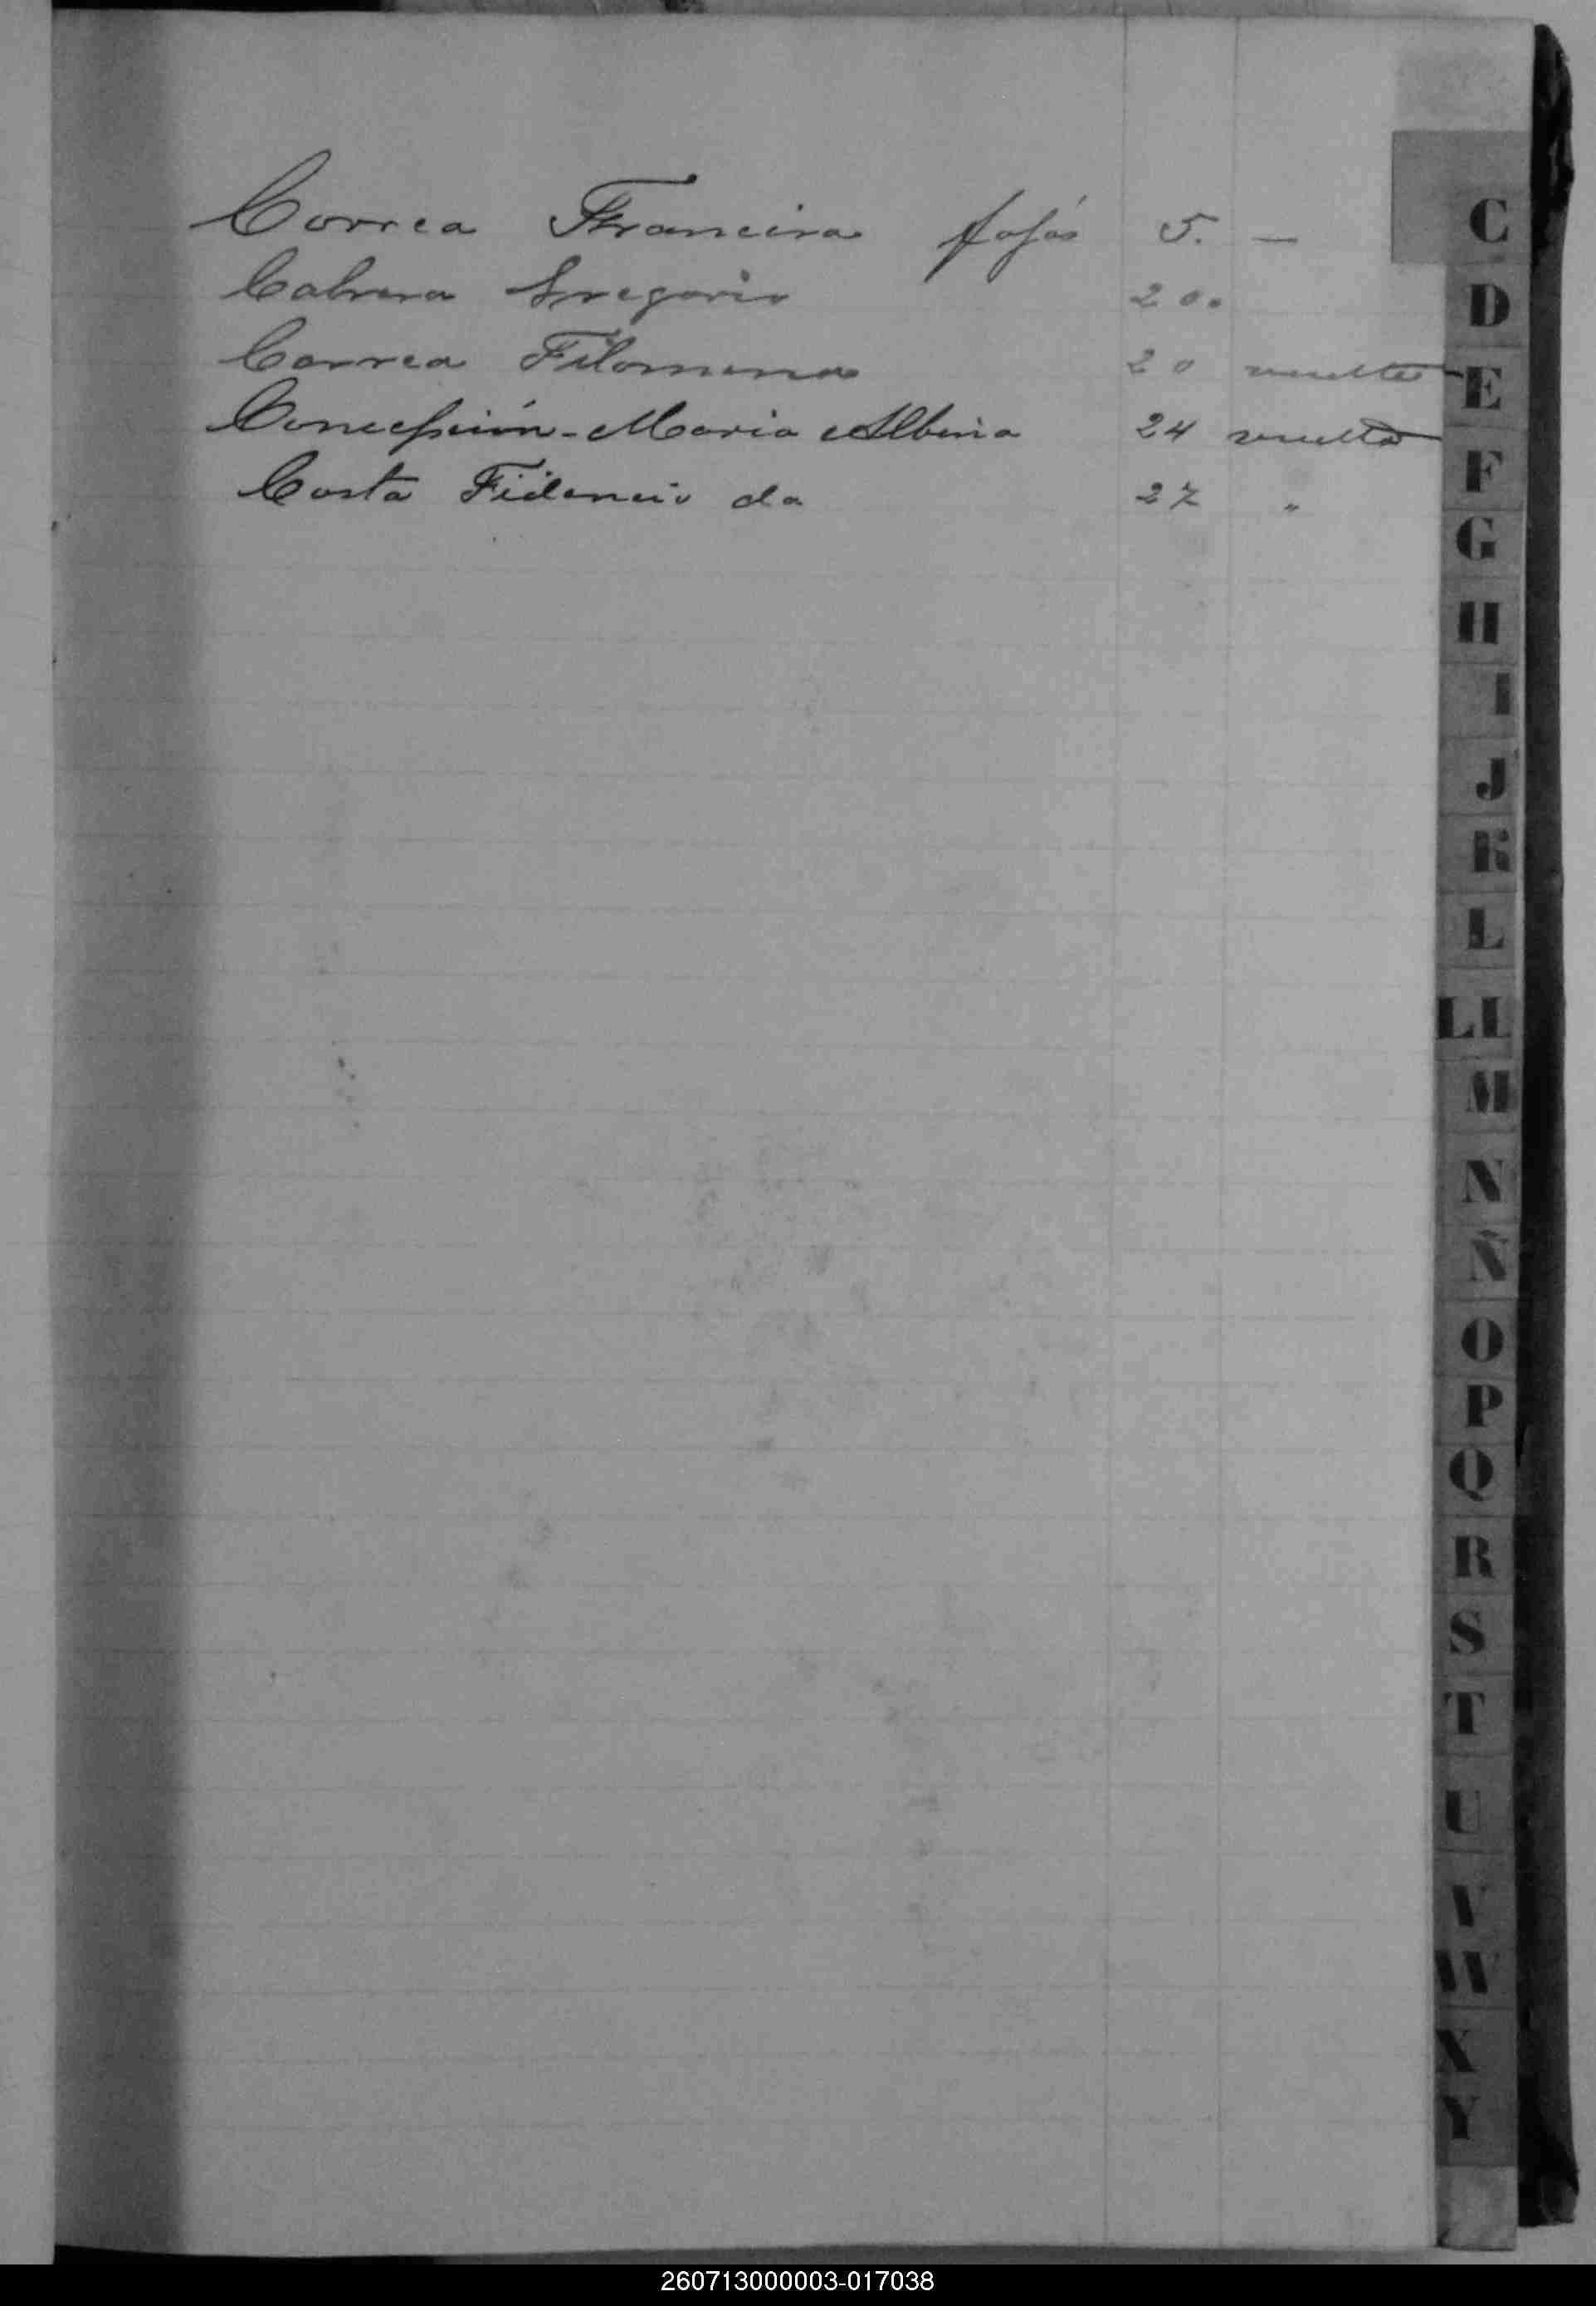 Correa Francisca fojas 5. —
Cabrera Gregorio 20.
Correa Filomena 20 vuelta
Concepción - Maria Albina 24 vuelta
Costa Fidencio da 27 "
C
D
E
F
G
H
I
J
K
L
LL
M
N
Ñ
O
P
Q
R
S
T
U
V
W
X
Y
260713000003-017038